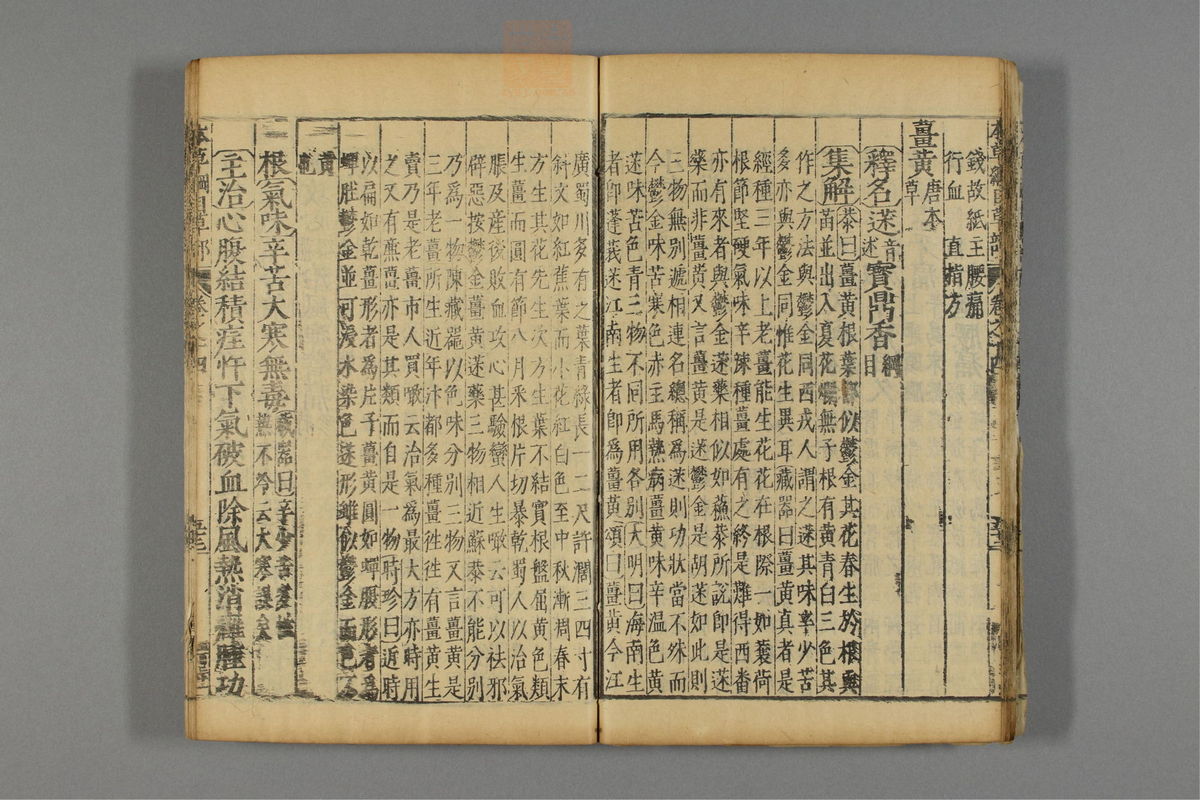 本草綱目草部 卷之十四
錢故紙主腰痛
行血 直指方
薑黃唐本草
釋名蒁音述寶鼎香綱目
集解恭曰薑黃根葉都似鬱金其花春生於根與
苗並出入夏花爛無子根有黃青白三色其
作之方法與鬱金同西戎人謂之蒁其味辛少苦
多亦與鬱金同惟花生異耳藏器曰薑黃真者是
經種三年以上老薑能生花花在根際一如蘘荷
根節堅硬氣味辛辣種薑處有之終是難得西番
亦有來者與鬱金蒁藥相似如蘇恭所說即是蒁
藥而非薑黃又言薑黃是蒁鬱金是胡蒁如此則
三物無別遞相連名總稱為蒁則功狀當不殊而
今鬱金味苦寒色赤主馬熱病薑黃味辛溫色黃
蒁味苦色青三物不同所用各別大明曰海南生
者即蓬莪蒁江南生者即為薑黃頌曰薑黃今江
廣蜀川多有之葉青綠長一二尺許濶三四寸有
斜文如紅蕉葉而小花紅白色至中秋漸凋春末
方生其花先生次方生葉不結實根盤屈黃色類
生薑而圓有節八月采根片切暴乾蜀人以治氣
脹及産後敗血攻心甚驗蠻人生噉云可以祛邪
辟惡按鬱金薑黃蒁藥三物相近蘇恭不能分別
乃為一物陳藏器以色味分別三物又言薑黃是
三年老薑所生近年汴都多種薑徃徃有薑黃生
賣乃是老薑市人買噉云治氣為最大方亦時用
之又有廉薑亦是其類而自是一物時珍曰近時
以扁如乾薑形者為片子薑黃圓如蟬腹形者為
蟬肚鬱金並可浸水染色蒁形雖似鬱金而色不
黃
根氣味辛苦大寒無毒藏器曰辛少苦多性
熱不冷云大寒誤矣
主治心腹結積疰忤下氣破血除風熱消癰腫功
本草綱目草部 卷之十四